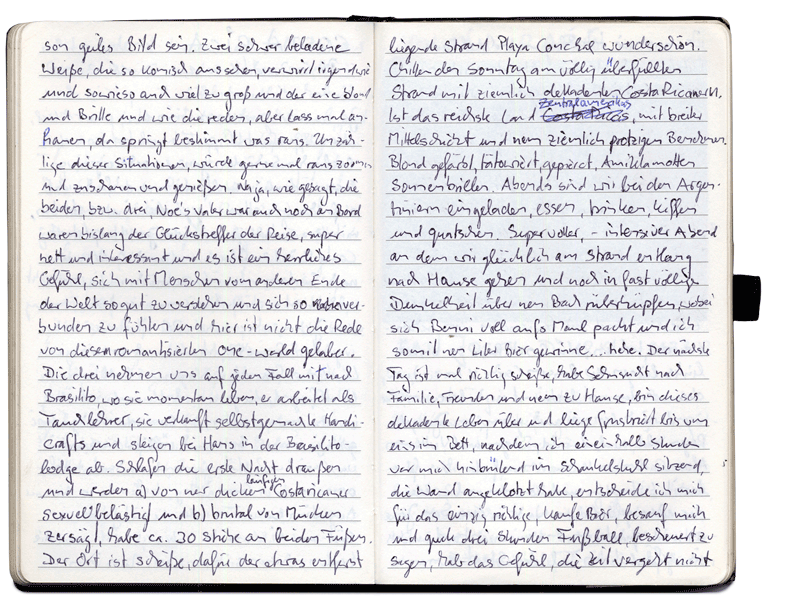 son geiles Bild sein. Zwei schwer beladene
Weiße, die so komisch aussehen, verwirrt irgendwie
und sowieso auch viel zu groß und der eine blond
und Brille und wie die reden, aber lass mal an-
hauen, da springt bestimmt was raus. Unzäh-
lige dieser Situationen, würde gerne mal rauszoomen
und zuschauen und genießen. Naja, wie gesagt, die
beiden, bzw. drei, Noe's Vater war auch noch an Bord
waren bislang der Glückstreffer der Reise, super
nett und interessant und es ist ein herrliches
Gefühl, sich mit Menschen vom anderen Ende
der Welt so gut zu verstehen und sich so ver-
bunden zu fühlen und hier ist nicht die Rede
von diesem romantisierten one-world gelaber.
Die drei nehmen uns auf jeden Fall mit nach
Brasilito, wo sie momentan leben, er arbeitet als
Tauchlehrer, sie verkauft selbstgemachte Handi-
crafts und steigen bei Hans in der Brasilito-
lodge ab. Schlafen die erste Nacht draußen
und werden a) von ner dicken läufigen Costaricaner
sexuell belästigt und b) brutal von Mücken
zersägt, habe ca. 30 Stiche an beiden Füßen.
Der Ort ist scheiße, dafür der etwas entfernt
liegende Strand Playa Conchal wunderschön.
Chillen den Sonntag am völlig überfüllten
Strand mit ziemlich dekadenten CostaRicanern.
Ist das reichste Land Zentralamerikas, mit breiter
Mittelschicht und nem ziemlich protzigen Benehmen.
Blond gefärbt, tätowiert, gepierct, Amiklamotten
Sonnenbrillen. Abends sind wir bei den Argen-
tiniern eingeladen, essen, trinken, kiffen
und quatschen. Super voller, - intensiver Abend
an dem wir glücklich am Strand entlang
nach Hause gehen und noch in fast völliger
Dunkelheit über nen Bach rüberhüpfen, wobei
sich Benni voll aufs Maul packt und ich
somit nen Liter Bier gewinne... hehe. Der nächste
Tag ist mal richtig scheiße, habe Sehnsucht nach
Familie, Freunden und nem zu Hause, bin dieses
dekadente Leben über und liege frustriert bis um
eins im Bett, nachdem ich eineinhalb Stunden
vor mich hinbrütend im Schaukelstuhl sitzend,
die Wand angeklotzt habe, entscheide ich mich
für das einzig richtige, kaufe Bier, besauf mich
und guck drei Stunden Fußball, bescheuert zu
sagen, hab das Gefühl, die Zeit vergeht nicht